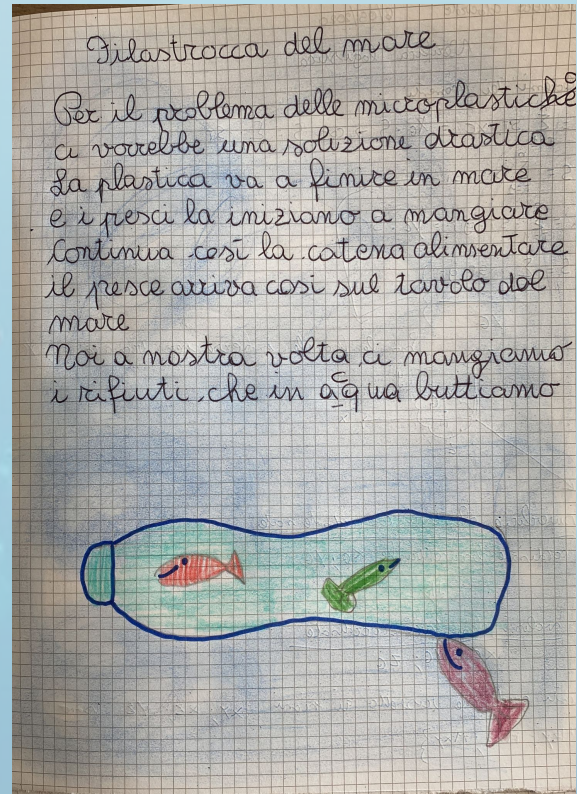 Filastrocca del mare
Per il problema delle microplastiche
ci vorrebbe una soluzione drastica
La plastica va a finire in mare
e i pesci la iniziano a mangiare
Continua così la catena alimentare
il pesce arriva così sul tavolo dal
mare
Noi a nostra volta ci mangiamo
i rifiuti che in acqua buttiamo